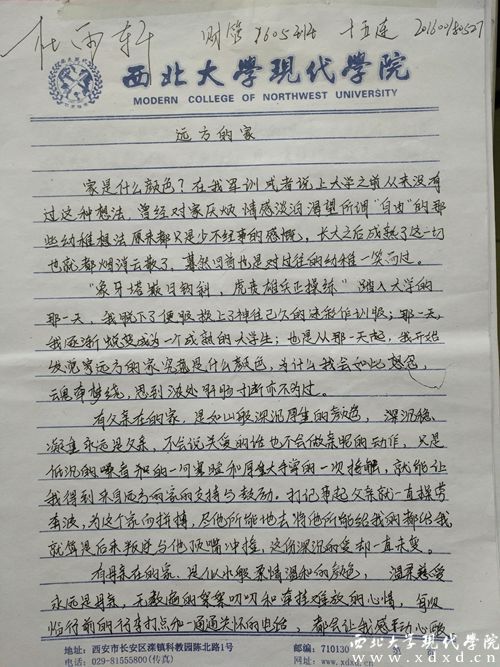 杜雨轩 财管1605班 十五连 2016001180527
西北大学现代学院
MODERN COLLEGE OF NORTHWEST UNIVERSITY
远方的家
家是什么颜色？在我军训或者说上大学之前从来没有
过这种想法，曾经对家厌烦情感淡泊渴望所谓“自由”的那
些幼稚想法原来都只是少不经事的感慨，长大之后成熟了这一切
也就都烟消云散了，蓦然回首也是对过往的幼稚一笑而过。
“象牙塔 日 ，虎贲雄兵正操练”踏入大学的
那一天，我脱下了便服换上了神往已久的迷彩作训服；那一天，
我逐渐蜕变成为一个成熟的大学生；也是从那一天起，我开始
发觉家远方的家究竟是什么颜色，为什么我会如此想念，
魂牵梦绕，思到深处肝肠寸断亦不为过。
有父亲在的家，是如山般深沉厚重的颜色，深沉稳
凝重永远是父亲，不会说关爱的话也不会做亲昵的动作，只是
低沉的嗓音和的一问寒暄和厚重大手掌的一次接触，就能让
我得到来自远方的家的支持与鼓励。打记事起父亲就一直操劳
奔波，为这个家而拼搏，尽他所能地去将他所能给我的都给我
就算是后来叛逆与他顶嘴冲撞，这份深沉的爱却一直未变。
有母亲在的家，是似水般柔情温和的颜色，温柔慈爱
永远是母亲，无数遍的絮絮叨叨和牵挂难放的心情，每次
临行前的行李打点和一通通关怀的电话，都会让我感动心暖
地址：西安市长安区滦镇科教园陈北路1号
电话：029-81555800(传真)
邮编：710130
西北大学现代学院
www.xdxd.cn